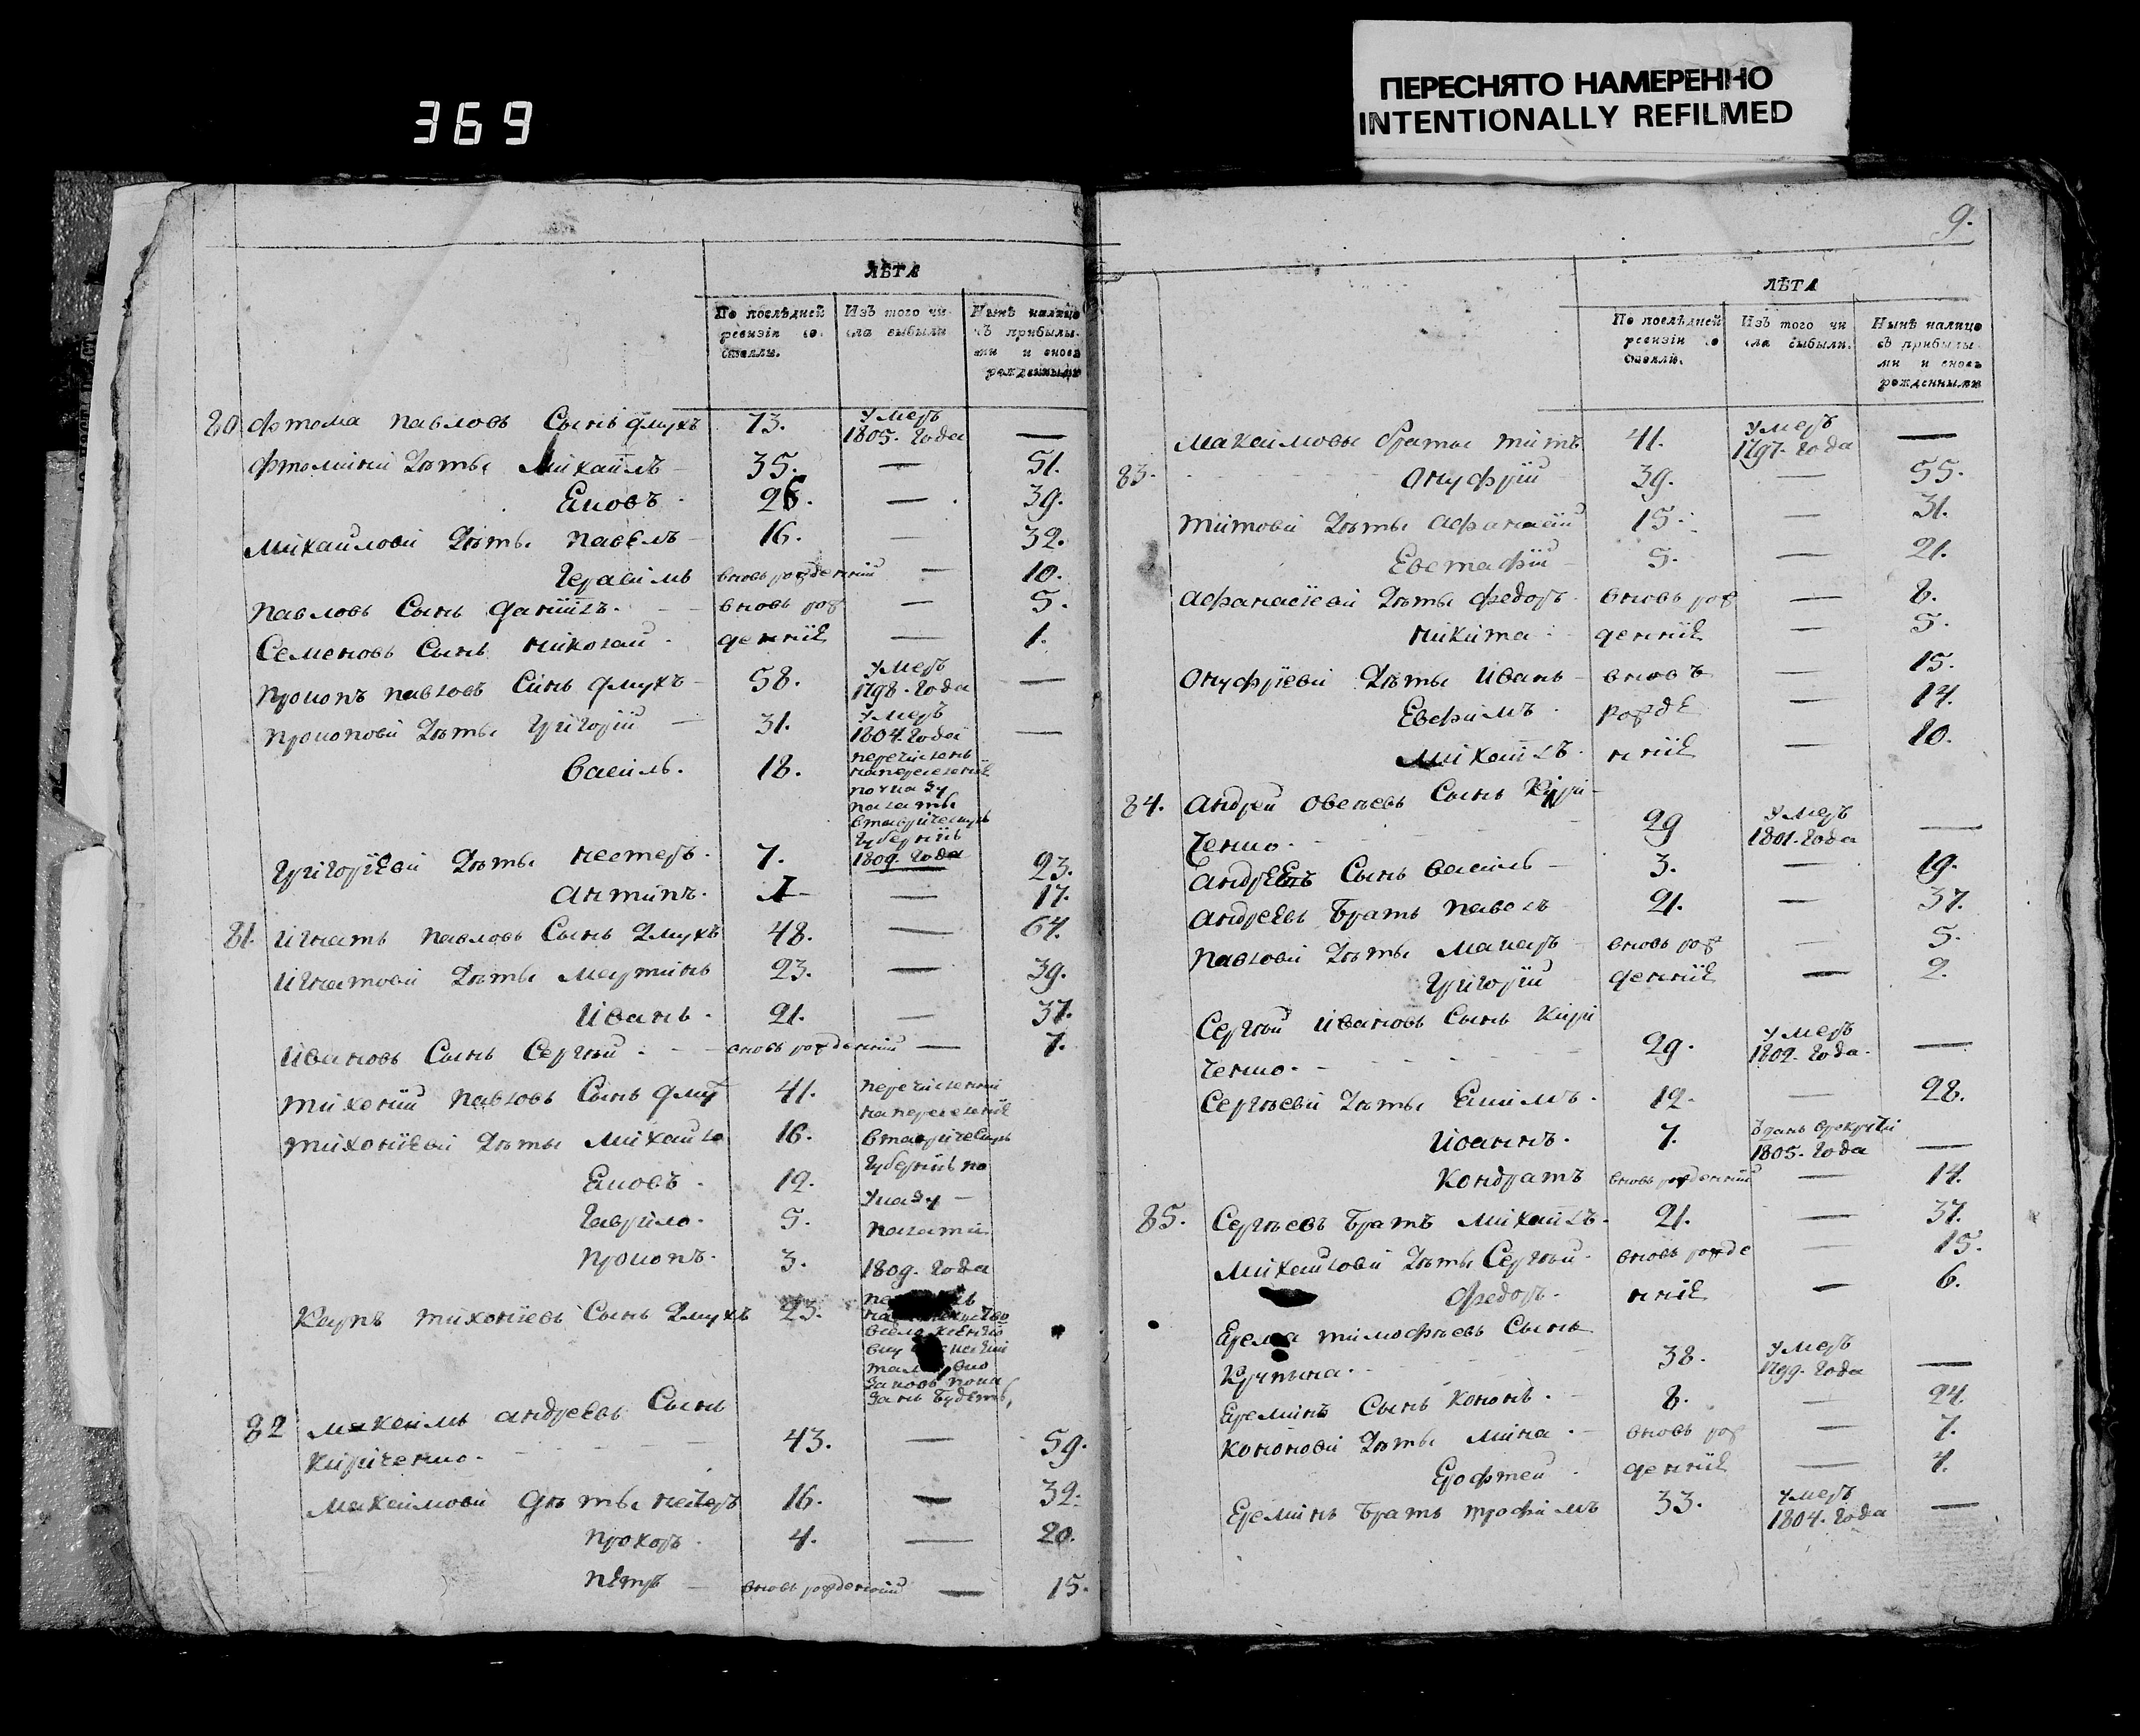 369
ПЕРЕСНЯТО НАМЕРЕННО
INTENTIONALLY REFILMED
ЛѢТА
По послѣдней ревизіи со стояли.
Изъ того чи сла выбыли
Нынѣ налицо съ прибылы ми и вновь рожденными
80. Фтома павловъ Сынъ дмухъ 73. умеръ 1805. года —
Фтоминіи Дѣтѣ Михайлъ 35. — 51.
Еновъ 26. — 39.
Михайлови Дѣтѣ павелъ 16. — 32.
Герасимъ вновь рожденніи — 10.
павловъ Сынъ даніилъ вновь рож — 5.
Семеновъ Сынъ николай деннїе — 1.
прокопъ павловъ Синъ дмухъ 58. умеръ 1798. года —
прокопови Дѣтѣ григоріи 31. умеръ 1804. года —
василь. 18. перечисленъ на переселеніе по указу палаты в таврическую губернію 1809. года
григоріеви Дѣтѣ нестеръ. 7. 23.
антипъ. 1 — 17.
81. игнатъ павловъ Сынъ Дмухъ 48. — 64.
игнатови Дѣтѣ мартинъ 23. — 39.
иванъ. 21. — 37.
ивановъ Сынъ Сергѣй вновь рожденніи — 7.
тихоніи павловъ Сынъ дму 41. перечисленни на переселеніе
тихоніеви Дѣтѣ михайло 16. в таврическую
Еновъ. 12. губернію по
гаврило. 5. указу
прокопъ. 3. палати 1809. года
карпъ тихоніевъ Сынъ Дмухъ 23.
82 максимъ андреевъ Сынъ
киріченко. 43. — 59.
максимови Дѣтѣ 16. — 32.
прохоръ 4. — 20.
пётръ вновь рожденніи — 15.
9.
ЛѢТА
По послѣдней ревизіи со стояли.
Изъ того чи сла выбыли.
Нынѣ налицо съ прибылы ми и вновь рожденными
максимовы браты титъ 41. умеръ 1797. года —
83. онуфріи 39. — 55.
титови Дѣтѣ афанасіи 15. — 31.
Евстафіи 5. — 21.
афанасіеви Дѣтѣ федоръ вновь рож — 8.
никита деннїе — 5.
онуфріеви Дѣтѣ иванъ вновъ — 15.
Евфимъ рожде — 14.
михаилъ ннїе — 10.
84. андрей овсѣевъ Сынъ Кири
ченко. 29 умеръ 1801. года —
андреевъ Сынъ василь 3. — 19.
андреевъ братъ павелъ 21. — 37.
павлови Дѣтѣ макаръ вновь рож — 5.
григоріи деннїе — 2.
Сергѣй ивановъ Сынъ Кири
ченко. 29. умеръ 1802. года —
Сергѣеви Дѣтѣ Екимъ 12. — 28.
иоаннъ. 7. взятъ в рекруты 1805. года —
кондратъ вновь рожденніи — 14.
85. Сергѣевъ братъ михаилъ. 21. — 37.
михаилови Дѣтѣ Сергѣй вновь рожде — 15.
федоръ. ннїе — 6.
Ерема тимофѣевъ Сынъ
38. умеръ 1799. года —
Ереминъ Сынъ кононъ. 8. — 24
кононови Дѣтѣ мина. вновь рож — 7.
Ерофтей деннїе — 4.
Ереминъ братъ трофимъ 33. умеръ 1804. года —